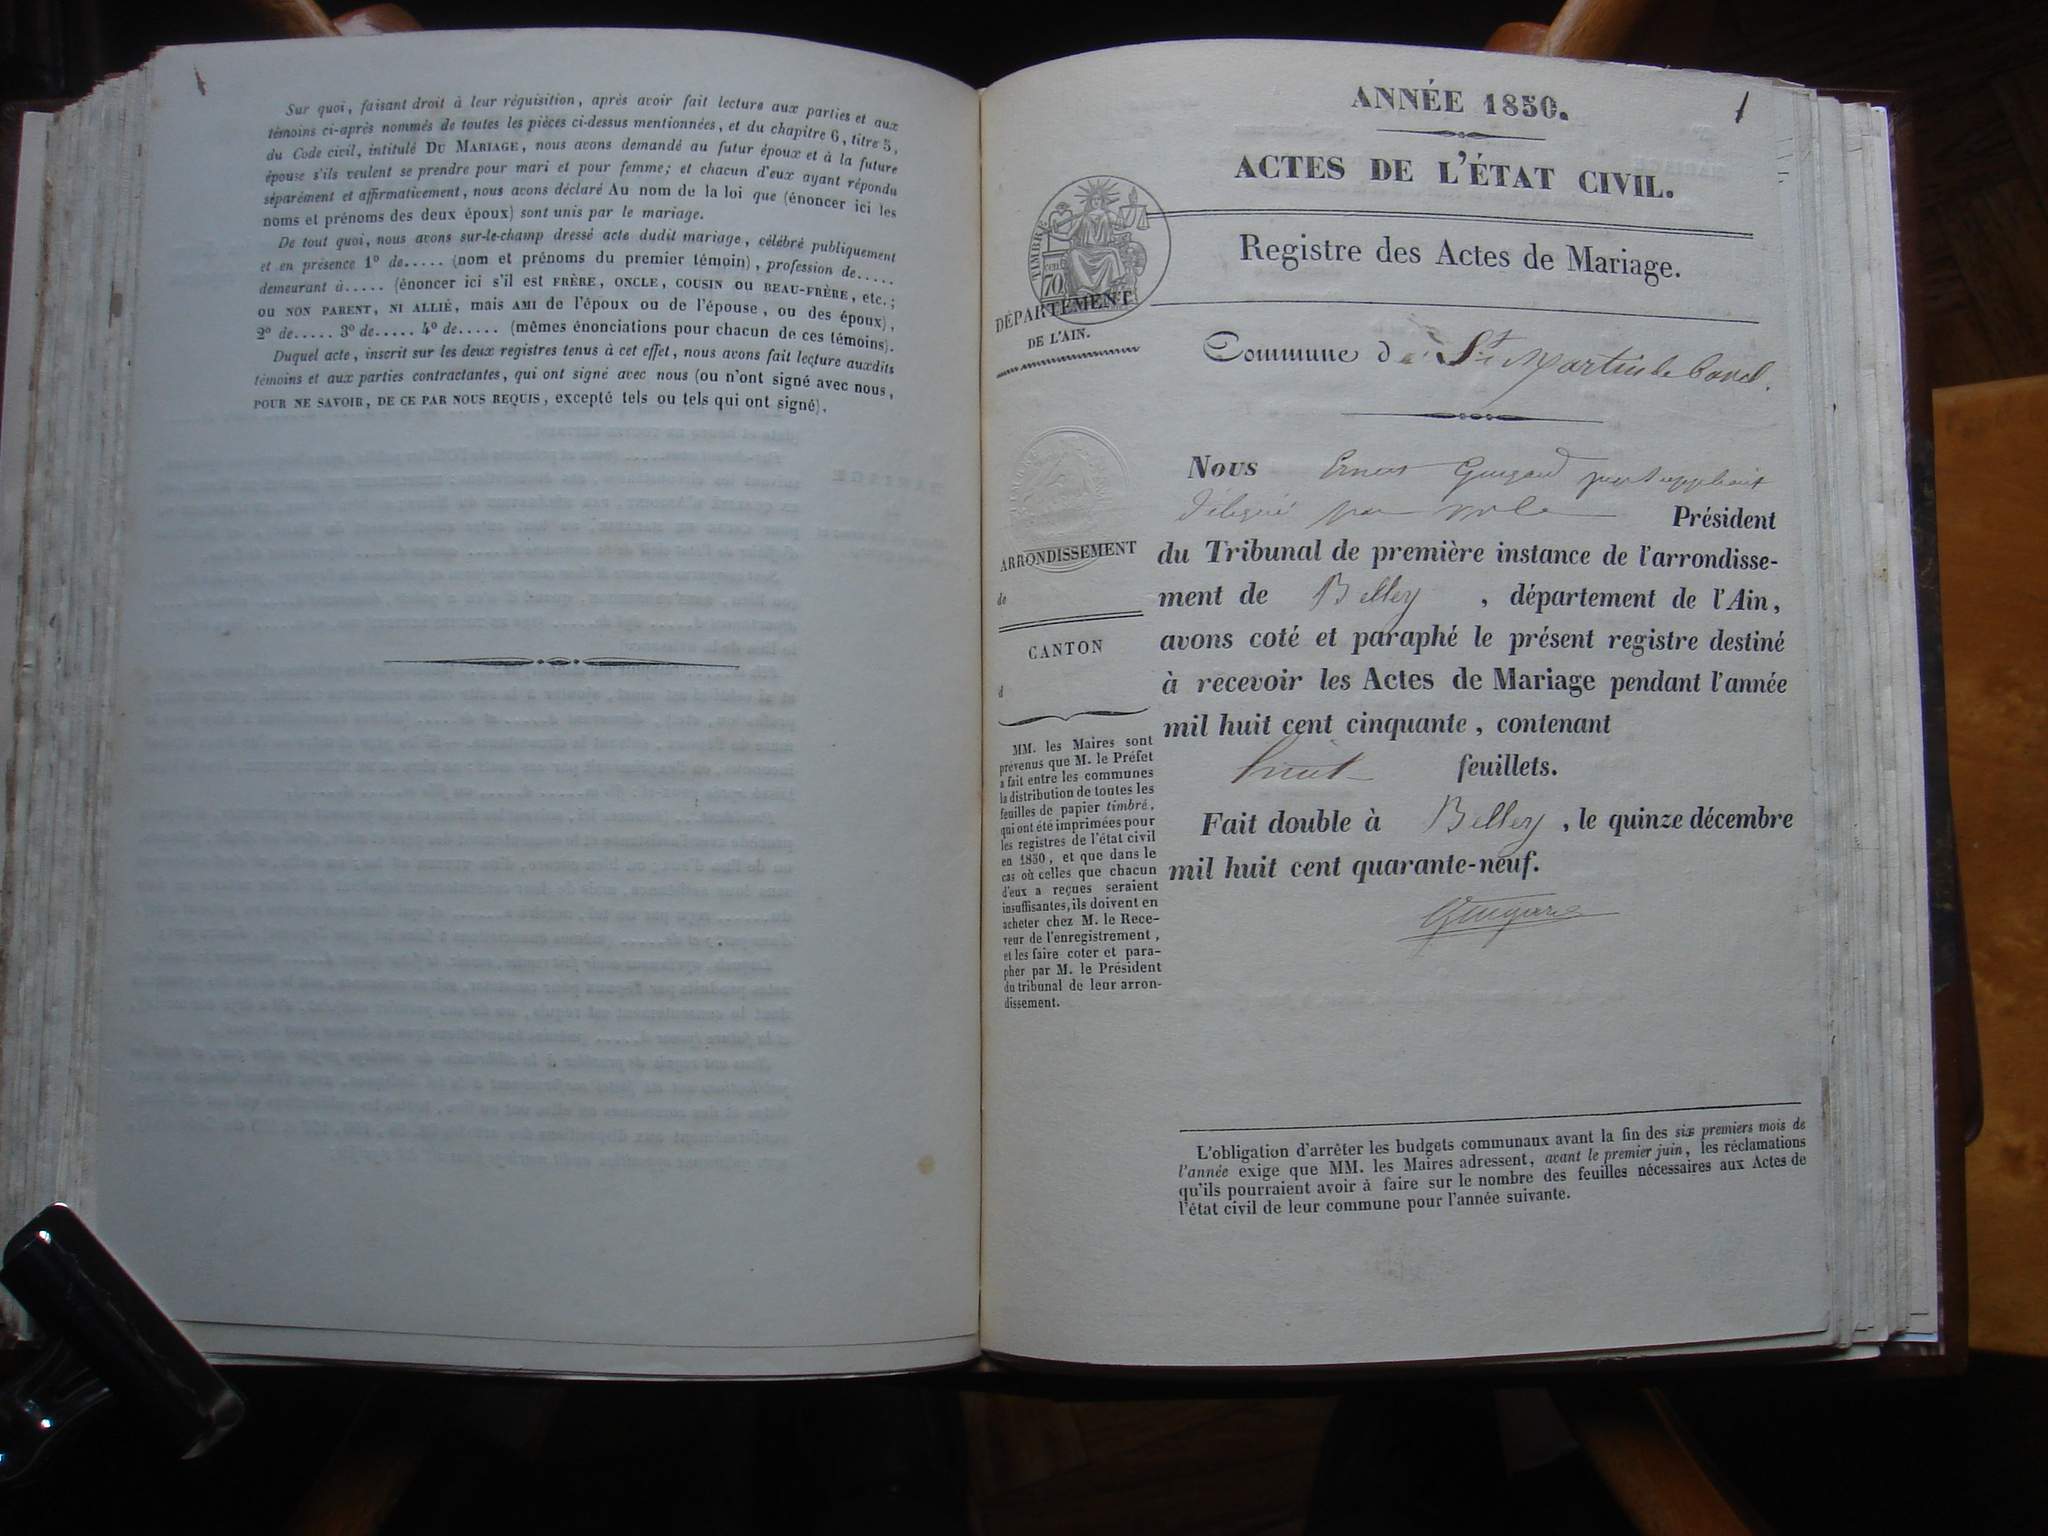 Sur quoi, faisant droit à leur réquisition, après avoir fait lecture aux parties et aux
témoins ci-après nommés de toutes les pièces ci-dessus mentionnées, et du chapitre 6, titre 5,
du Code civil, intitulé DU MARIAGE, nous avons demandé au futur époux et à la future
épouse s'ils veulent se prendre pour mari et pour femme; et chacun d'eux ayant répondu
séparément et affirmaticement, nous avons déclaré Au nom de la loi que (énoncer ici les
noms et prénoms des deux époux) sont unis par le mariage.
De tout quoi, nous avons sur-le-champ dressé acte dudit mariage, célébré publiquement
et en présence 1º de..... (nom et prénoms du premier témoin), profession de.....
demeurant à..... (énoncer ici s'il est FRÈRE, ONCLE, COUSIN ou BEAU-FRÈRE, etc.;
ou NON PARENT, NI ALLIÉ, mais AMI de l'époux ou de l'épouse, ou des époux),
2º de..... 3º de..... 4º de..... (mêmes énonciations pour chacun de ces témoins).
Duquel acte, inscrit sur les deux registres tenus à cet effet, nous avons fait lecture auxdits
témoins et aux parties contractantes, qui ont signé avec nous (ou n'ont signé avec nous,
POUR NE SAVOIR, DE CE PAR NOUS REQUIS, excepté tels ou tels qui ont signé).
1
ANNÉE 1850.
ACTES DE L'ÉTAT CIVIL.
Registre des Actes de Mariage.
TIMBRE
70
DÉPARTEMENT
DE L'AIN.
Commune de St Martin de Bavel.
ARRONDISSEMENT
de
CANTON
d
MM. les Maires sont
prévenus que M. le Préfet
a fait entre les communes
la distribution de toutes les
feuilles de papier timbré,
qui ont été imprimées pour
les registres de l'état civil
en 1850, et que dans le
cas où celles que chacun
d'eux a reçues seraient
insuffisantes, ils doivent en
acheter chez M. le Rece-
veur de l'enregistrement,
et les faire coter et para-
pher par M. le Président
du tribunal de leur arron-
dissement.
Nous Ernest Guigard juge suppléant
délégué par Président
du Tribunal de première instance de l'arrondisse-
ment de Belley, département de l'Ain,
avons coté et paraphé le présent registre destiné
à recevoir les Actes de Mariage pendant l'année
mil huit cent cinquante, contenant
huit feuillets.
Fait double à Belley, le quinze décembre
mil huit cent quarante-neuf.
Guigard
L'obligation d'arrêter les budgets communaux avant la fin des six premiers mois de
l'année exige que MM. les Maires adressent, avant le premier juin, les réclamations
qu'ils pourraient avoir à faire sur le nombre des feuilles nécessaires aux Actes de
l'état civil de leur commune pour l'année suivante.